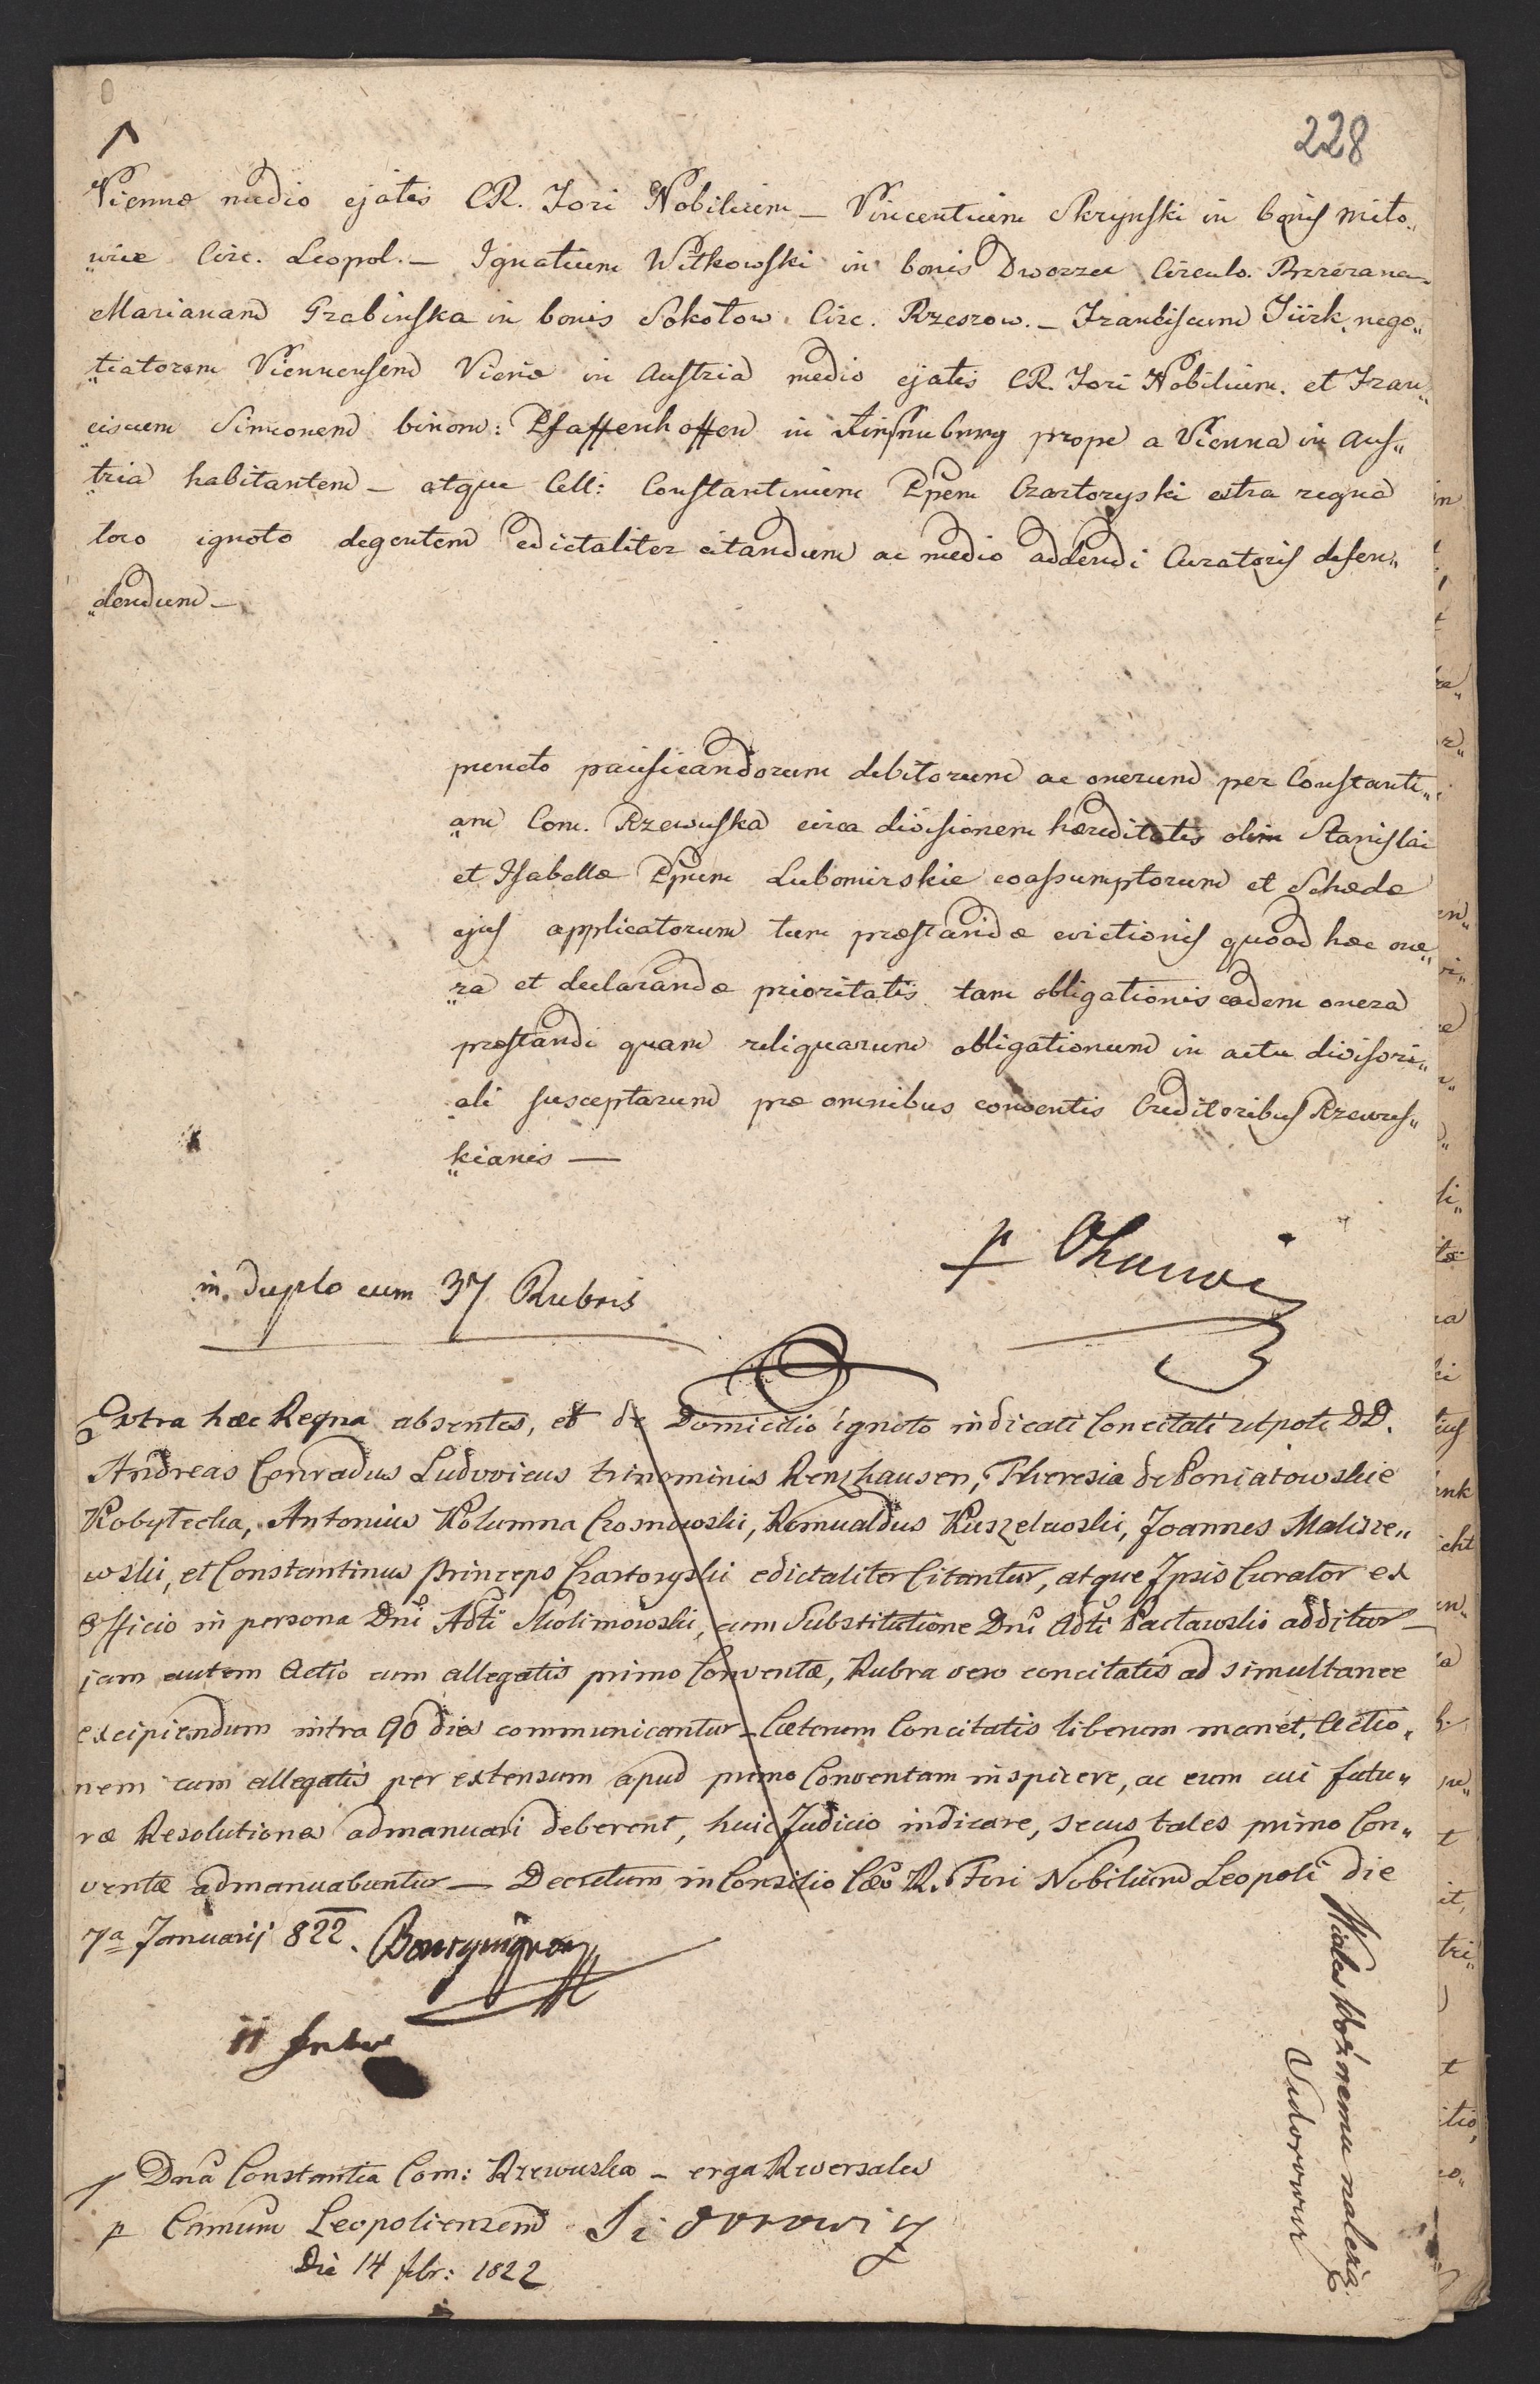 228
Viennæ medio ejatis CR. Fori Nobilium – Vincentium Skrzynski in bonis Milo„
„wice Circ. Leopol. – Ignatium Witkowski in bonis Dworzec Circulo. Brzezana –
Marianam Grabinska in bonis Sokołow Circ. Rzeszow. – Franciscum Türk nego„
„tiatorem Viennensem Vienæ in Austria medio ejatis CR. Fori Nobilium. et Fran„
„ciscum Simonem binom: Pfaffenhoffen in prope a Vienna in Aus„
„tria habitantem – atque Cell: Constantinum Ppem Czartoryski extra regna
loco ignoto degentem edictaliter citandum ac medio addendi Curatoris defen„
„dendum –
puncto pacificandorum debitorum ac onerum per Constanti„
„am Com. Rzewuska circa divisionem hæreditatis olim Stanislai
et Isabellæ Ppum Lubomirskie coassumptorum et Schedæ
ejus applicatorum tum præstandæ evictionis quoad hæc one„
„ra et declarandæ prioritatis tam obligationis eadem onera
præstandi quam reliquarum obligationum in actu divisori„
„ali susceptarum præ omnibus conventis Creditoribus Rzewus„
„kianis —
in duplo cum 37 Rubris
Extra hæc Regna absentes, et de Domicilio ignoto indicati Concitati utpote DD.
Andreas Conradus Ludovicus trinominis Renzhausen, Theresia de Poniatowskie
Kobylecka, Antonius Kolumna Czosnowski, Romualdus Kuszelewski, Joannes Malisze„
wski, et Constantinus Princeps Czartoryski edictaliter Citantur, atque Ipsis Curator ex
Officio in persona Dni Adti Skolimowski, cum Substitutione Dni Adti Pacławski additur –
jam autem Actio cum allegatis primo Conventæ, Rubra vero concitatis ad simultanee
excipiendum intra 90 dies communicantur – Cæterum Concitatis liberum manet, Actio„
nem cum allegatis per extensum apud primo Conventam inspicere, ac eum cui futu„
ræ Resolutiones admanuari deberent, huic Judicio indicare, secus tales primo Con„
ventæ admanuabuntur — Decretum in Consilio Cæs R. Fori Nobilium Leopoli die
7ª Januarij 822. Bourguignon
p Dna Constantia Com: Rzewuska – erga Reversales
p Camum Leopoliensem Sidorowicz
Die 14 febr: 1822
Woznemu należą.
Sidorowicz